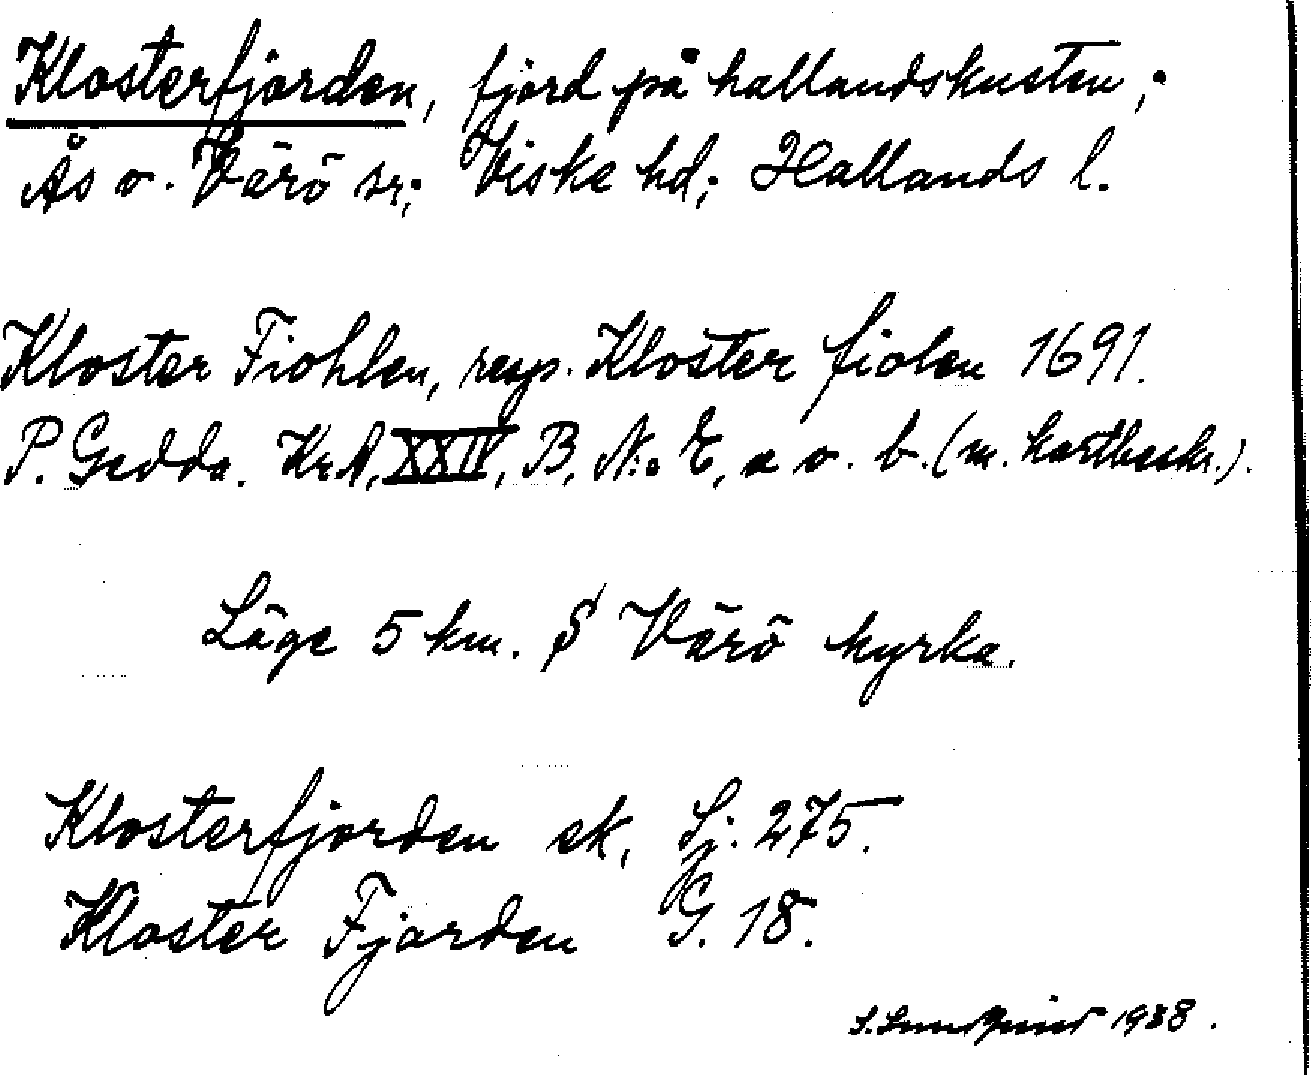 Klosterfjorden, fjord på hallandskusten;
Ås o. Värö sr; Viske hd; Hallands l.
Kloster Fiohlen, resp. Kloster fiolen 1691.
P. Gedda. Kr.A, XXIV, B, N:o E, a o. b. (m. kartbeskr.).
Läge 5 km. S Värö kyrka.
Klosterfjorden ek, Sj. 275.
Kloster Fjorden G. 18.
S. Lundqvist 1938.